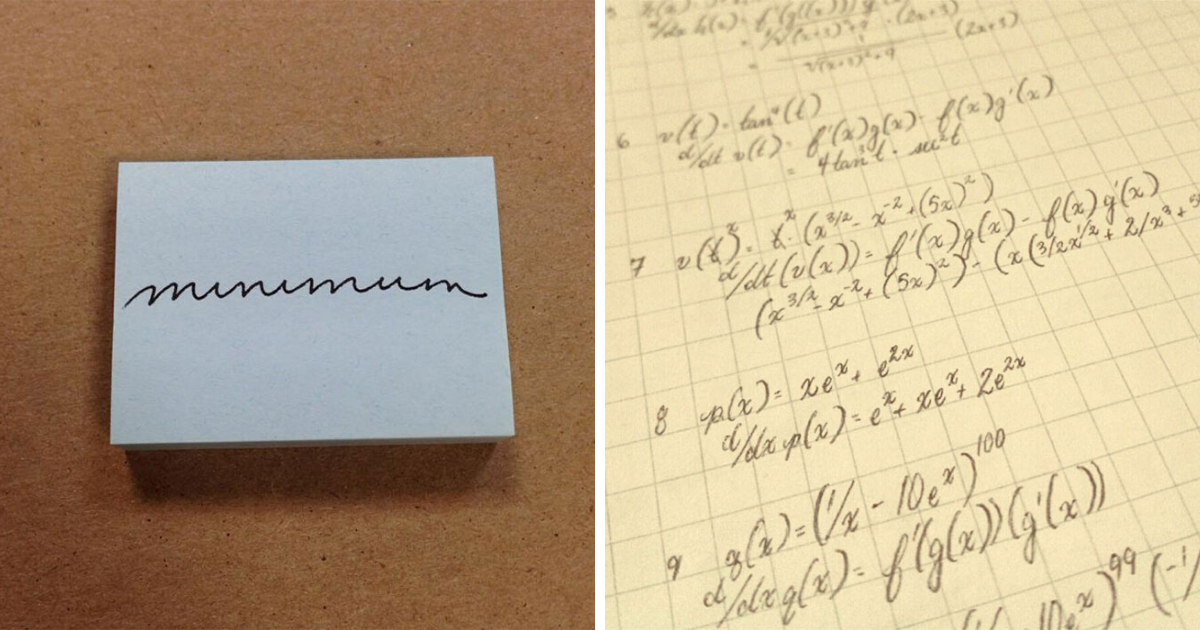 minimum
= 1/√((x+3)²+9 (2x+3)
6 v(t) = tan⁴(t)
d/dt v(t) = f'(x)g(x) - f(x)g'(x)
= 4tan³t · sec²t
7 v(t)ˣ = tˣ · (x^3/2 - x^-2 + (5x)²)
d/dt(v(x)) = f'(x)g(x) - f(x)g'(x)
(x^3/2 - x^-2 + (5x)²) - (x(3/2x^1/2 + 2/x³ +
8 p(x) = xeˣ + e^2x
d/dx p(x) = eˣ + xeˣ + 2e^2x
9 q(x) = (1/x - 10eˣ)^100
d/dx q(x) = f'(g(x))(g'(x))
10eˣ)^99 (-1/